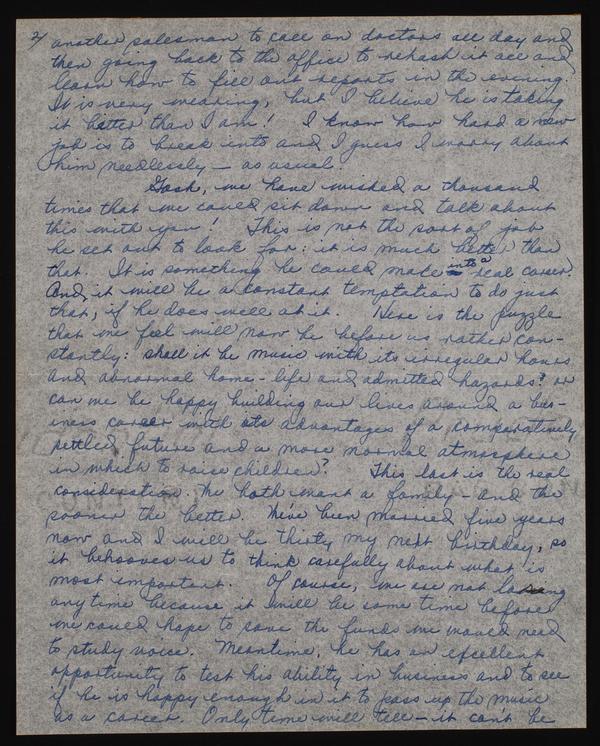 2/ another salesman to call on doctors all day and
then going back to the office to rehash it all and
learn how to fill out reports in the evening.
It is very wearing, but I believe he is taking
it better than I am! I know how hard a new
job is to break into and I guess I worry about
him needlessly — as usual.
Gosh, we have wished a thousand
times that we could sit down and talk about
this with you! This is not the sort of job
he set out to look for: it is much better than
that. It is something he could make into a real career.
And, it will be a constant temptation to do just
that, if he does well at it. Here is the puzzle
that we feel will now be before us rather con-
stantly: shall it be music with its irregular hours
and abnormal home-life and admitted hazards? or
can we be happy building our lives around a bus-
iness career with its advantages of a comparatively
settled future and a more normal atmosphere
in which to raise children? This last is the real
consideration. We both want a family — and the
sooner the better. We've been married five years
now and I will be thirty my next birthday, so
it behooves us to think carefully about what is
most important. Of course, we are not losing
any time because it will be some time before
we could hope to save the funds we would need
to study voice. Meantime, he has an excellent
opportunity to test his ability in business and to see
if he is happy enough in it to pass up the music
as a career. Only time will tell — it can't be